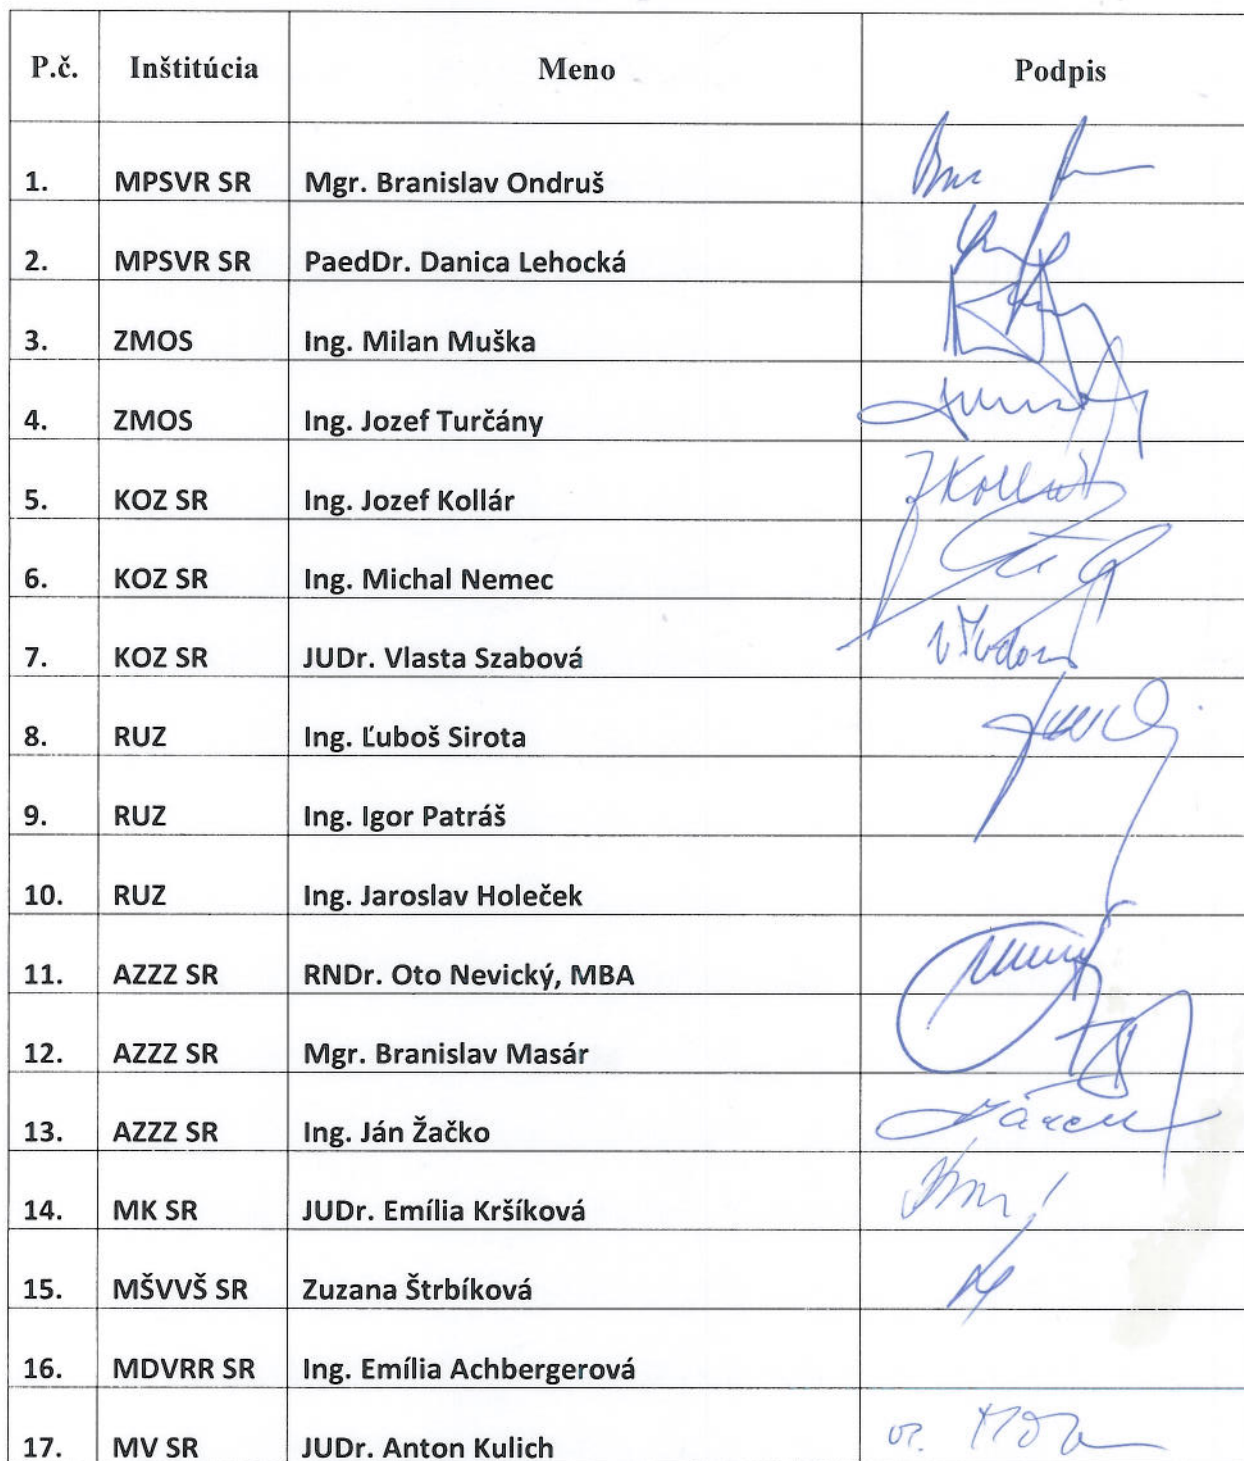 P.č. Inštitúcia Meno Podpis
1. MPSVR SR Mgr. Branislav Ondruš
2. MPSVR SR PaedDr. Danica Lehocká
3. ZMOS Ing. Milan Muška
4. ZMOS Ing. Jozef Turčány
5. KOZ SR Ing. Jozef Kollár JKollár
6. KOZ SR Ing. Michal Nemec
7. KOZ SR JUDr. Vlasta Szabová
8. RUZ Ing. Ľuboš Sirota
9. RUZ Ing. Igor Patráš
10. RUZ Ing. Jaroslav Holeček
11. AZZZ SR RNDr. Oto Nevický, MBA
12. AZZZ SR Mgr. Branislav Masár
13. AZZZ SR Ing. Ján Žačko
14. MK SR JUDr. Emília Kršíková
15. MŠVVŠ SR Zuzana Štrbíková
16. MDVRR SR Ing. Emília Achbergerová
17. MV SR JUDr. Anton Kulich